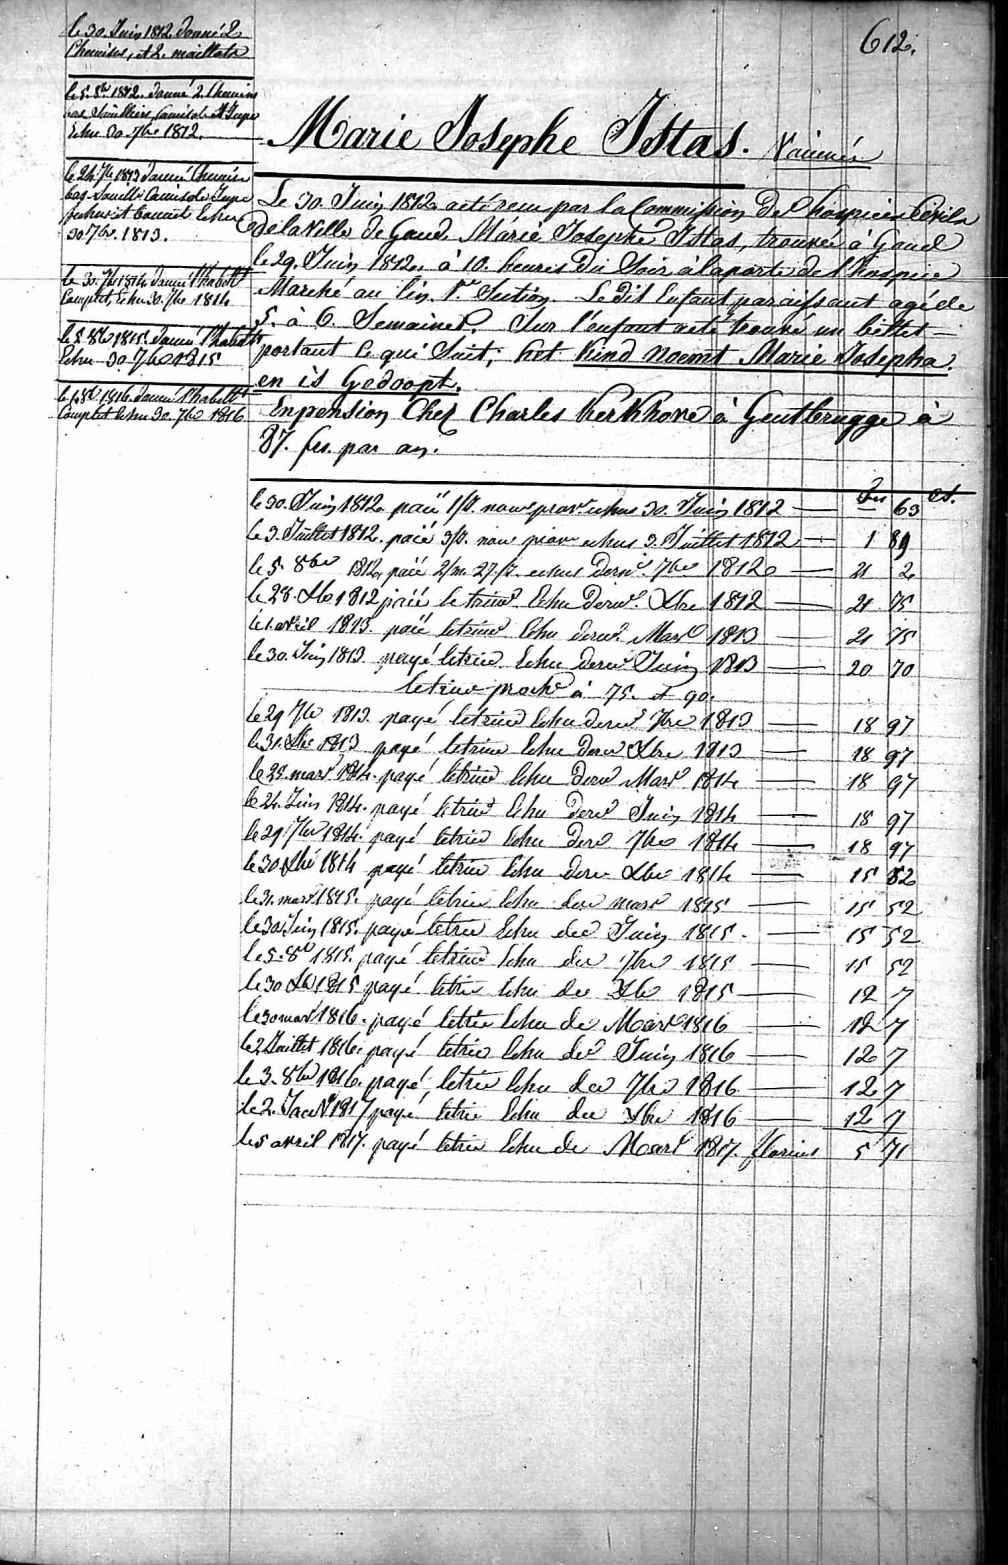 612.
le 30. Juin 1812. donné 2
Chemises, et 2. maillots
le 5. 8bre 1812. donné 2. Chemises
bas Souilliers, Camisole et Jupe
Echu 30. 7bre 1812.
le 24. 7bre 1813 donné Chemise
bas Souilliés Camisole Jupe
et bonnet Echu
30 7bre. 1813.
le 30. 7bre 1814 donné l'habillt
Complet, Echu 30. 7bre 1814
le 5. 8bre 1815. donné l'habillt
Echu 30. 7bre 1815
le 8bre 1816. donné l'habillt
Complet Echu 30. 7bre 1816
Marie Josephe Istas. Vaccinée
Le 30. Juin 1812. a été reçu par la Commission des hospices Civils
de la Ville de Gand. Marie Josephe Istas, trouvée à Gand
le 29. Juin 1812. à 10. heures du Soir à la porte de l'hospice
Marché au lin. 1re Section. Le dit Enfant paraissant agé de
5. à 6. Semaines. Sur l'enfant a été trouvé un billet
portant Ce qui Suit; het kind noemt Marie Josepha.
en is Gedoopt.
En pension Chez Charles Kerkhove à Gentbrugge à
87. frs. par an.
frs ct.
le 30. Juin 1812. paié 1/j. nour prov echus 30. Juin 1812 — 63
le 3. Juillet 1812. paié 3/j. nour prov echus 3. Juillet 1812 — 1 89
le 5. 8bre 1812, paié 2/m. 27/j. echus dernr. 7bre 1812 — 21 2
le 28. Xbre 1812 paié le trimr. Echu dernr. Xbre 1812 — 21 75
le 1. avril 1813. paié le trimr Echu dernr Mars 1813 — 21 75
le 30. Juin 1813 payé le trim Echu dernr Juin 1813 — 20 70
le trim proche à 75. et 90.
le 29 7bre 1813. payé le trim Echu dernr 7bre 1813 — 18 97
le 31. Xbre 1813 payé le trim Echu dernr Xbre 1813 — 18 97
le 25. mars 1814. payé le trim Echu dernr Mars 1814 — 18 97
le 24. Juin 1814. payé le trim Echu dernr Juin 1814 — 18 97
le 29 7bre 1814. payé le trim Echu dernr 7bre 1814 — 18 97
le 30 Xbre 1814 payé le trim Echu dernr Xbre 1814 — 15 52
le 31. mars 1815. payé le trim Echu der mars 1815 — 15 52
le 30 Juin 1815. payé le trim Echu der Juin 1815. — 15 52
le 5. 8bre 1815. payé le trim Echu der 7bre 1815 — 15 52
le 30 Xbre 1815 payé le trim Echu der Xbre 1815 — 12 7
le 30 mars 1816. payé le trim Echu de Mars 1816 — 12 7
le 2. Juillet 1816. payé le trim Echu der Juin 1816 — 12 7
le 3. 8bre 1816. payé le trim Echu der 7bre 1816 — 12 7
le 2. Janvr 1817 payé le trim Echu der Xbre 1816 — 12 7
le 5 avril 1817. payé le trim Echu de Mars 1817. florins 5 71